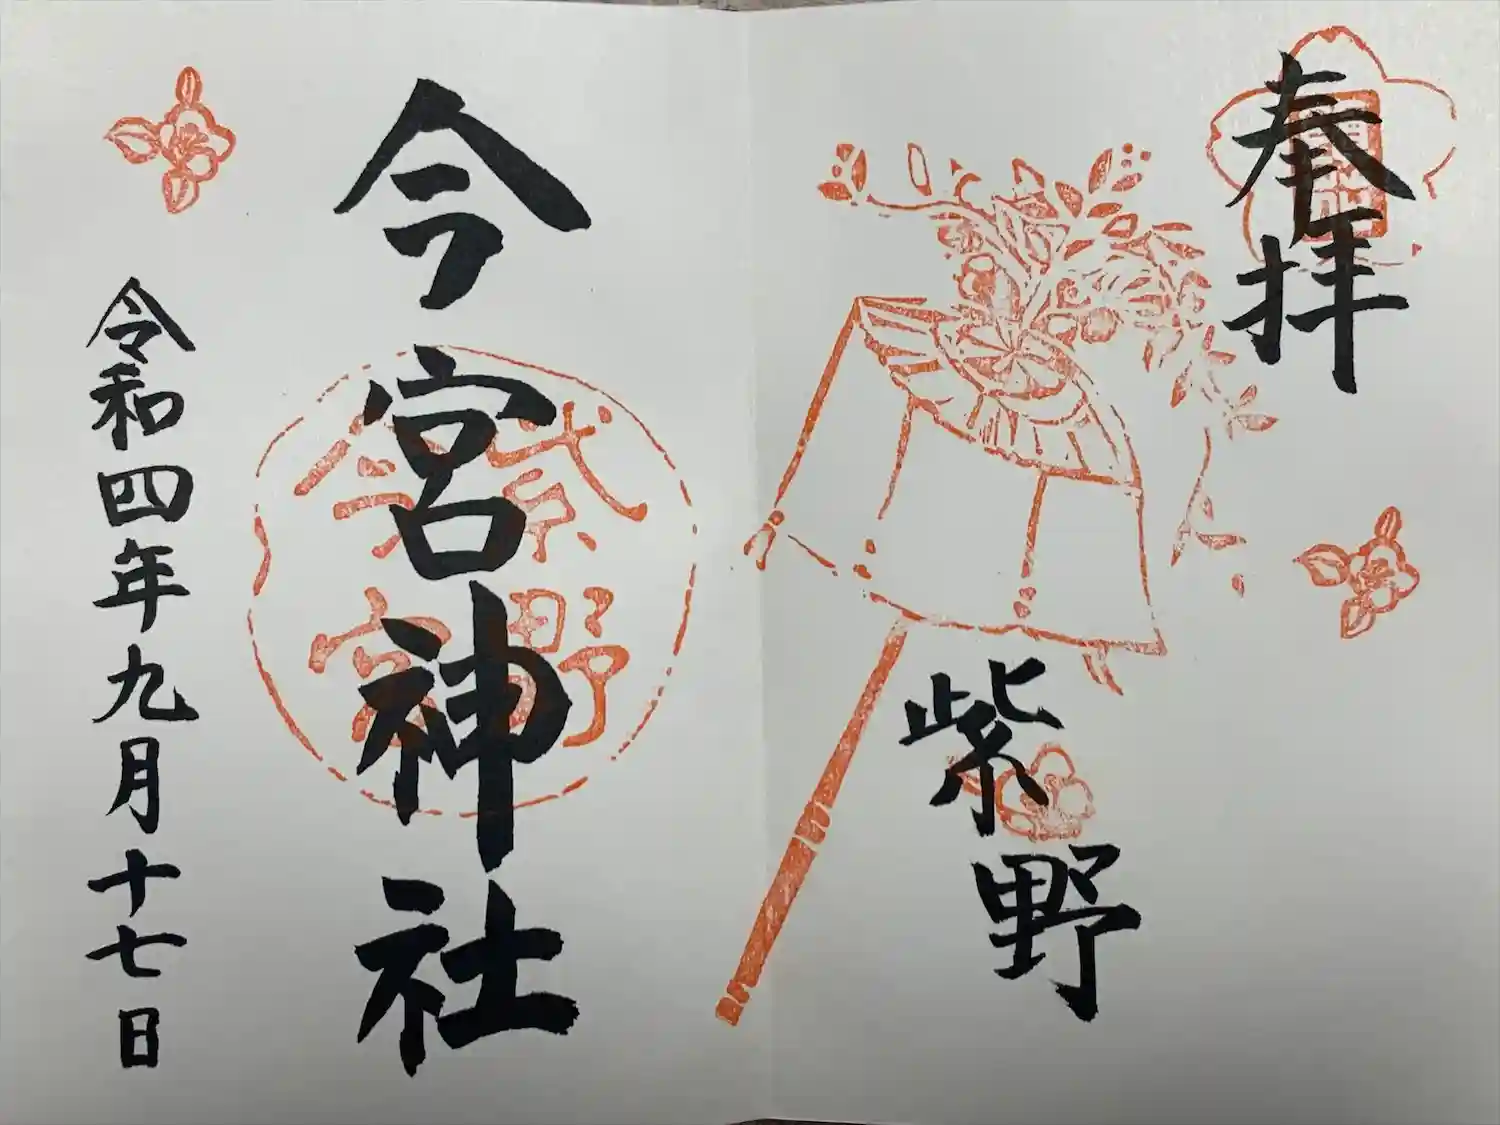 奉拝
紫野
今宮神社
令和四年九月十七日
紫野
今宮